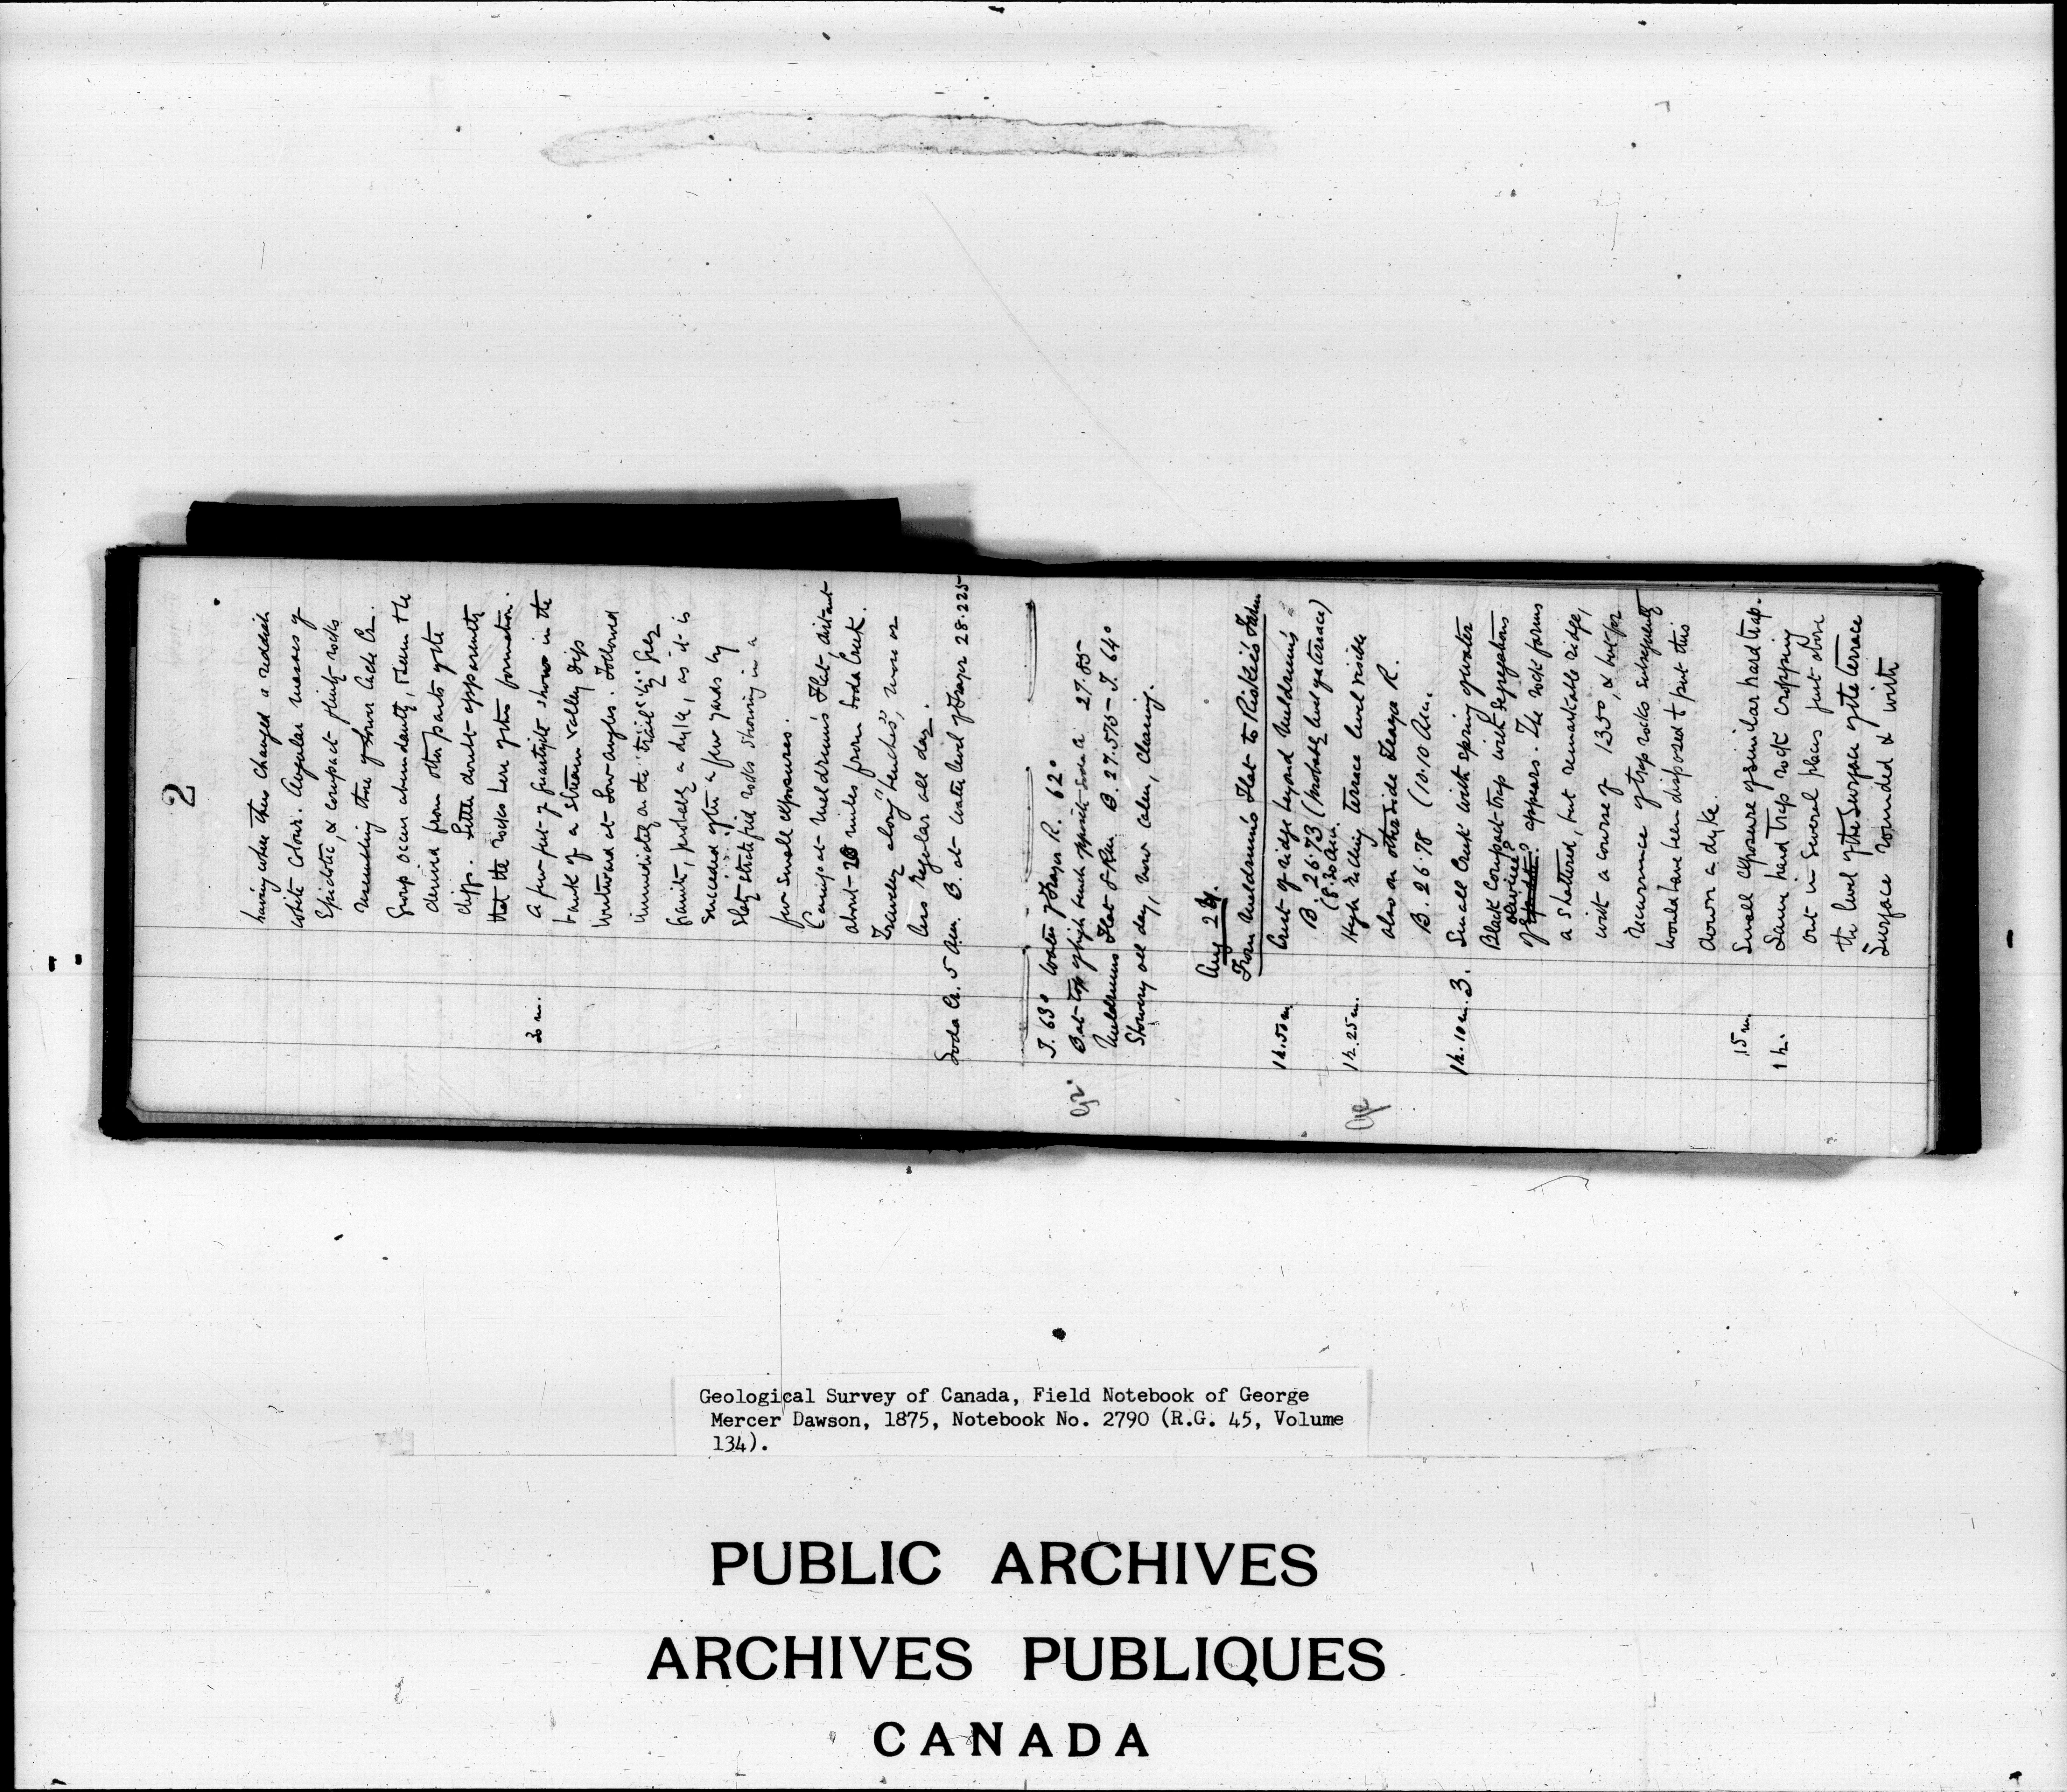 2
having when thus changed a reddish
white colour. Angular masses of
Epidotic, & compact flinty rocks
resembling those of Lower Cache Cr.
Group occur abundantly, & seem to be
derived from other parts of the
cliffs. Little doubt apparently
that the rocks here of this formation.
30 m. A few feet of quartzite shows in the
bank of a stream valley dips
Westward at low angles. Followed
immediately on the trail by grey
granite, probably a dyke, as it is
succeeded after a few yards by
Slaty stratified rocks showing in a
few small exposures.
Camp at Meldrum's Flat, distant
about 20 miles from Soda Creek.
Travelled along "benches", more or
less regular all day.
Soda Cr. 5 Am. B. at water level of Frazer 28.225
T. 63° Water of Frazer R. 62°
B at top of high bench opposite Soda 27.85
Meldrums Flat 8 P.m. B. 27.575 - T. 64°
Showery all day, now calm, clearing.
Aug 24.
From Meldrum's Flat to Riskie's Farm
1 h. 50 m Crest of ridge beyond Meldrum's
B. 26.73 (probably level of a terrace)
(8.30 Am.
1 h. 25 m. High rolling terrace level visible
also on other side Frazer R.
B. 26.78 (10.10 Am.
1 h. 10 m. 3. Small Creek with spring of water
Black Compact trap with segregations
of olivine? appears. The rock forms
a shattered, but remarkable ridge,
with a course of 135°, & but for
recurrence of trap rocks subsequently
would have been disposed to put this
down a dyke.
15 m Small exposure of similar hard trap.
1 h. Same hard Trap rock cropping
out in several places just above
the level of the surface of the terrace
Surface rounded & with
Geological Survey of Canada, Field Notebook of George
Mercer Dawson, 1875, Notebook No. 2790 (R.G. 45, Volume
134).
PUBLIC ARCHIVES
ARCHIVES PUBLIQUES
CANADA